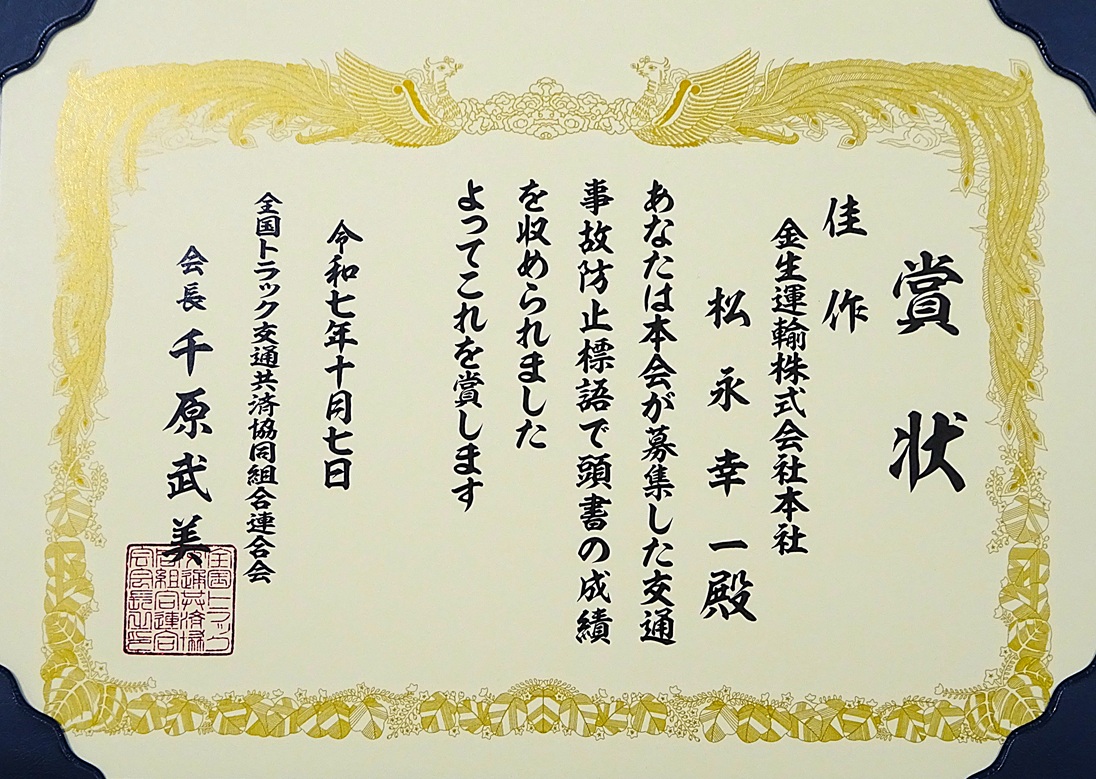 賞状
佳作
金生運輸株式会社本社
松永幸一殿
あなたは本会が募集した交通
事故防止標語で頭書の成績
を収められました
よってこれを賞します
令和七年十月七日
全国トラック交通共済協同組合連合会
会長 千原武美
全国トラック
交通共済協
同組合連合
会会長之印